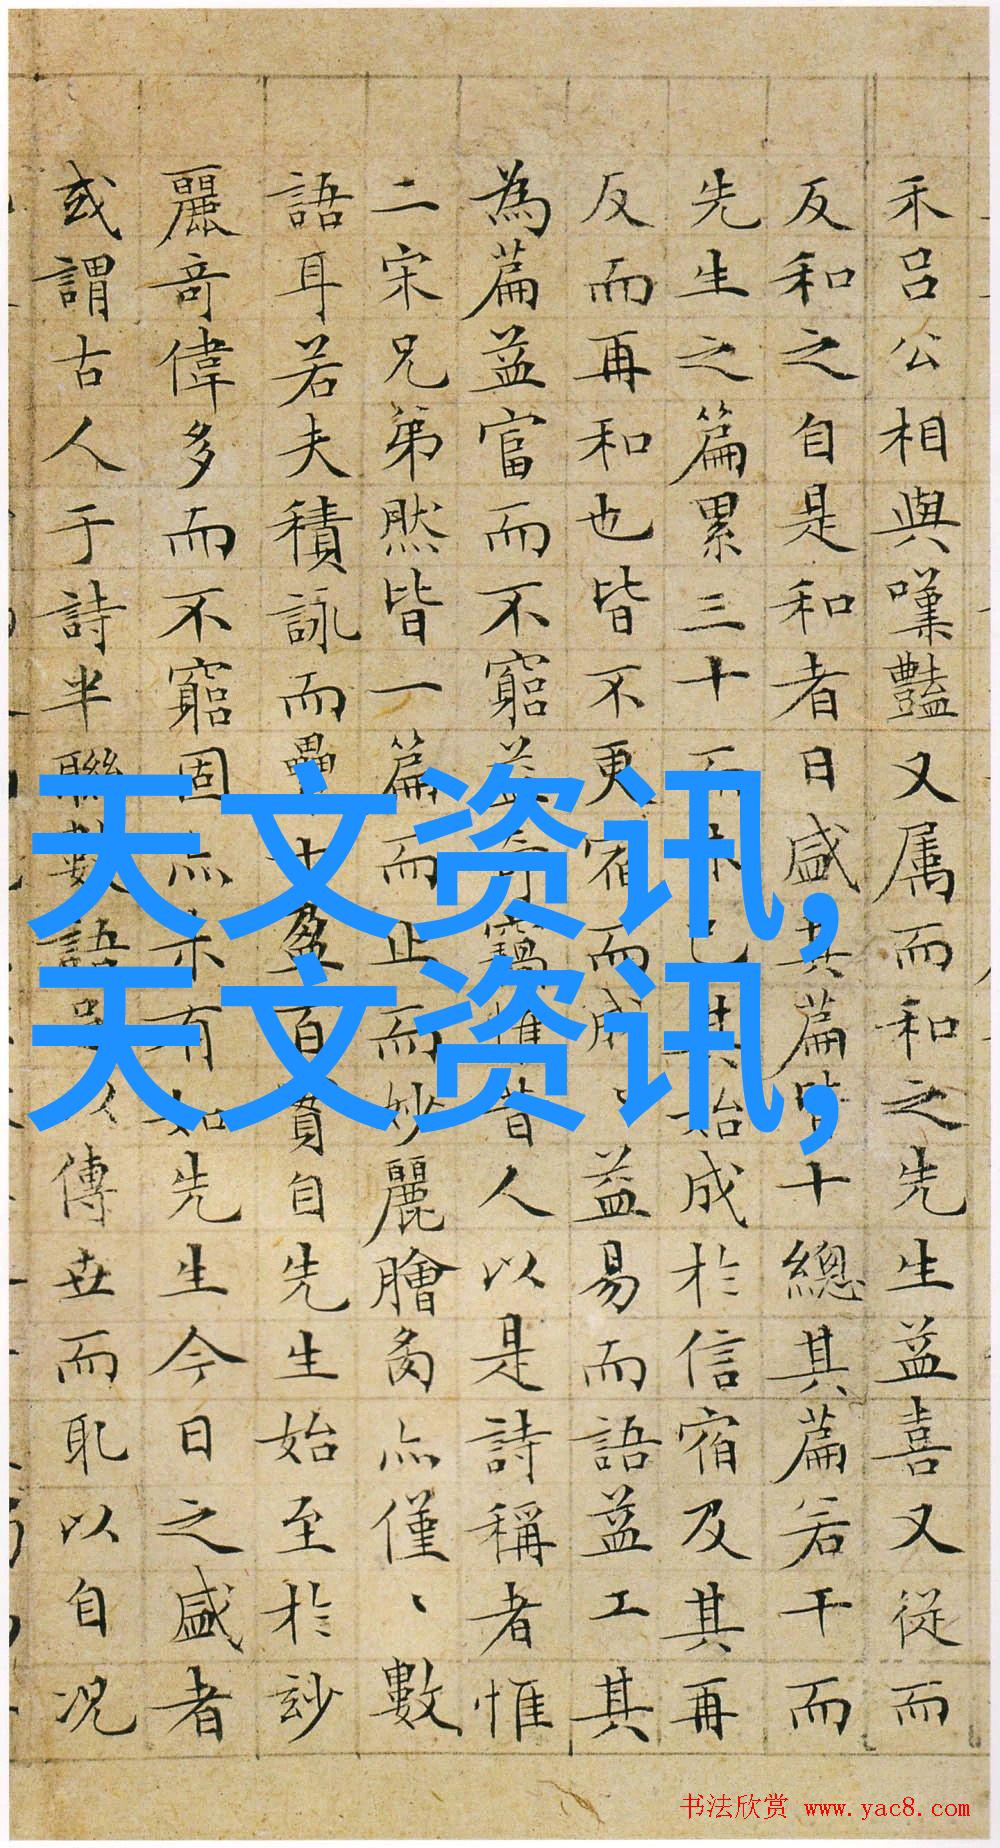 禾呂公相與嘆豔又属而和之先生益喜又從而
反和之自是和者日盛其篇皆十總其篇若干而
先生之篇累三十而已其始成於信宿及其再
反而再和也皆不更宿而成益易而語益工其
為篇益富而不窮益奇竊惟昔人以是詩稱者惟
二宋兄弟然皆一篇而止而妙麗膾炙亦僅、數
語耳若夫積詠而疊十盈百實自先生始至於玅
麗奇偉多而不窮固亦未有如先生今日之盛者
或謂古人于詩半聯數語足以傳世而耻以自况
天文资讯,
天文资讯,
书法欣赏 www.yac8.com